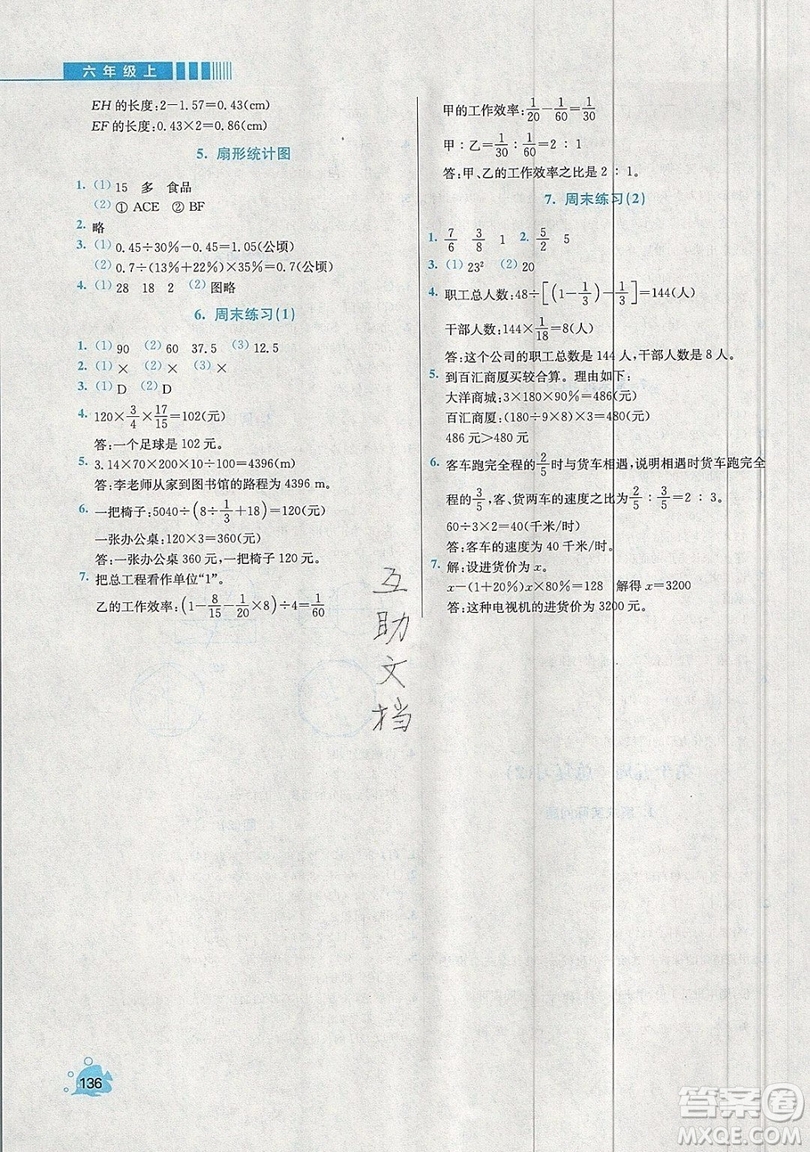 六年级上
EH的长度:2-1.57=0.43(cm)
EF的长度:0.43×2=0.86(cm)
5. 扇形统计图
1. (1) 15 多 食品
(2) ① ACE ② BF
2. 略
3. (1) 0.45÷30%-0.45=1.05(公顷)
(2) 0.7÷(13%+22%)×35%=0.7(公顷)
4. (1) 28 18 2 (2) 图略
6. 周末练习(1)
1. (1) 90 (2) 60 37.5 (3) 12.5
2. (1) × (2) ×
3. (1) D (2) D
4. 120×3/4×17/15=102(元)
答:一个足球是 102 元。
5. 3.14×70×200×10÷100=4396(m)
答:李老师从家到图书馆的路程为 4396 m。
6. 一把椅子:5040÷(8÷1/3+18)=120(元)
一张办公桌:120×3=360(元)
答:一张办公桌 360 元,一把椅子 120 元。
7. 把总工程看作单位“1”。
乙的工作效率:(1-8/15-1/20×8)÷4=1/60
甲的工作效率:1/20-1/60=1/30
甲∶乙=1/30∶1/60=2∶1
答:甲、乙的工作效率之比是 2∶1。
7. 周末练习(2)
1. 7/6 3/8 1 2. 5/2 5
3. (1) 23² (2) 20
4. 职工总人数:48÷[(1-1/3)-1/3]=144(人)
干部人数:144×1/18=8(人)
答:这个公司的职工总数是 144 人,干部人数是 8 人。
5. 到百汇商厦买较合算。理由如下:
大洋商城:3×180×90%=486(元)
百汇商厦:(180÷9×8)×3=480(元)
486 元>480 元
6. 客车跑完全程的2/5时与货车相遇,说明相遇时货车跑完全
程的3/5,客、货两车的速度之比为2/5∶3/5=2∶3。
60÷3×2=40(千米/时)
答:客车的速度为 40 千米/时。
7. 解:设进货价为 x。
x-(1+20%)x×80%=128 解得 x=3200
答:这种电视机的进货价为 3200 元。
互助文档
136
答案圈
MXQE.COM